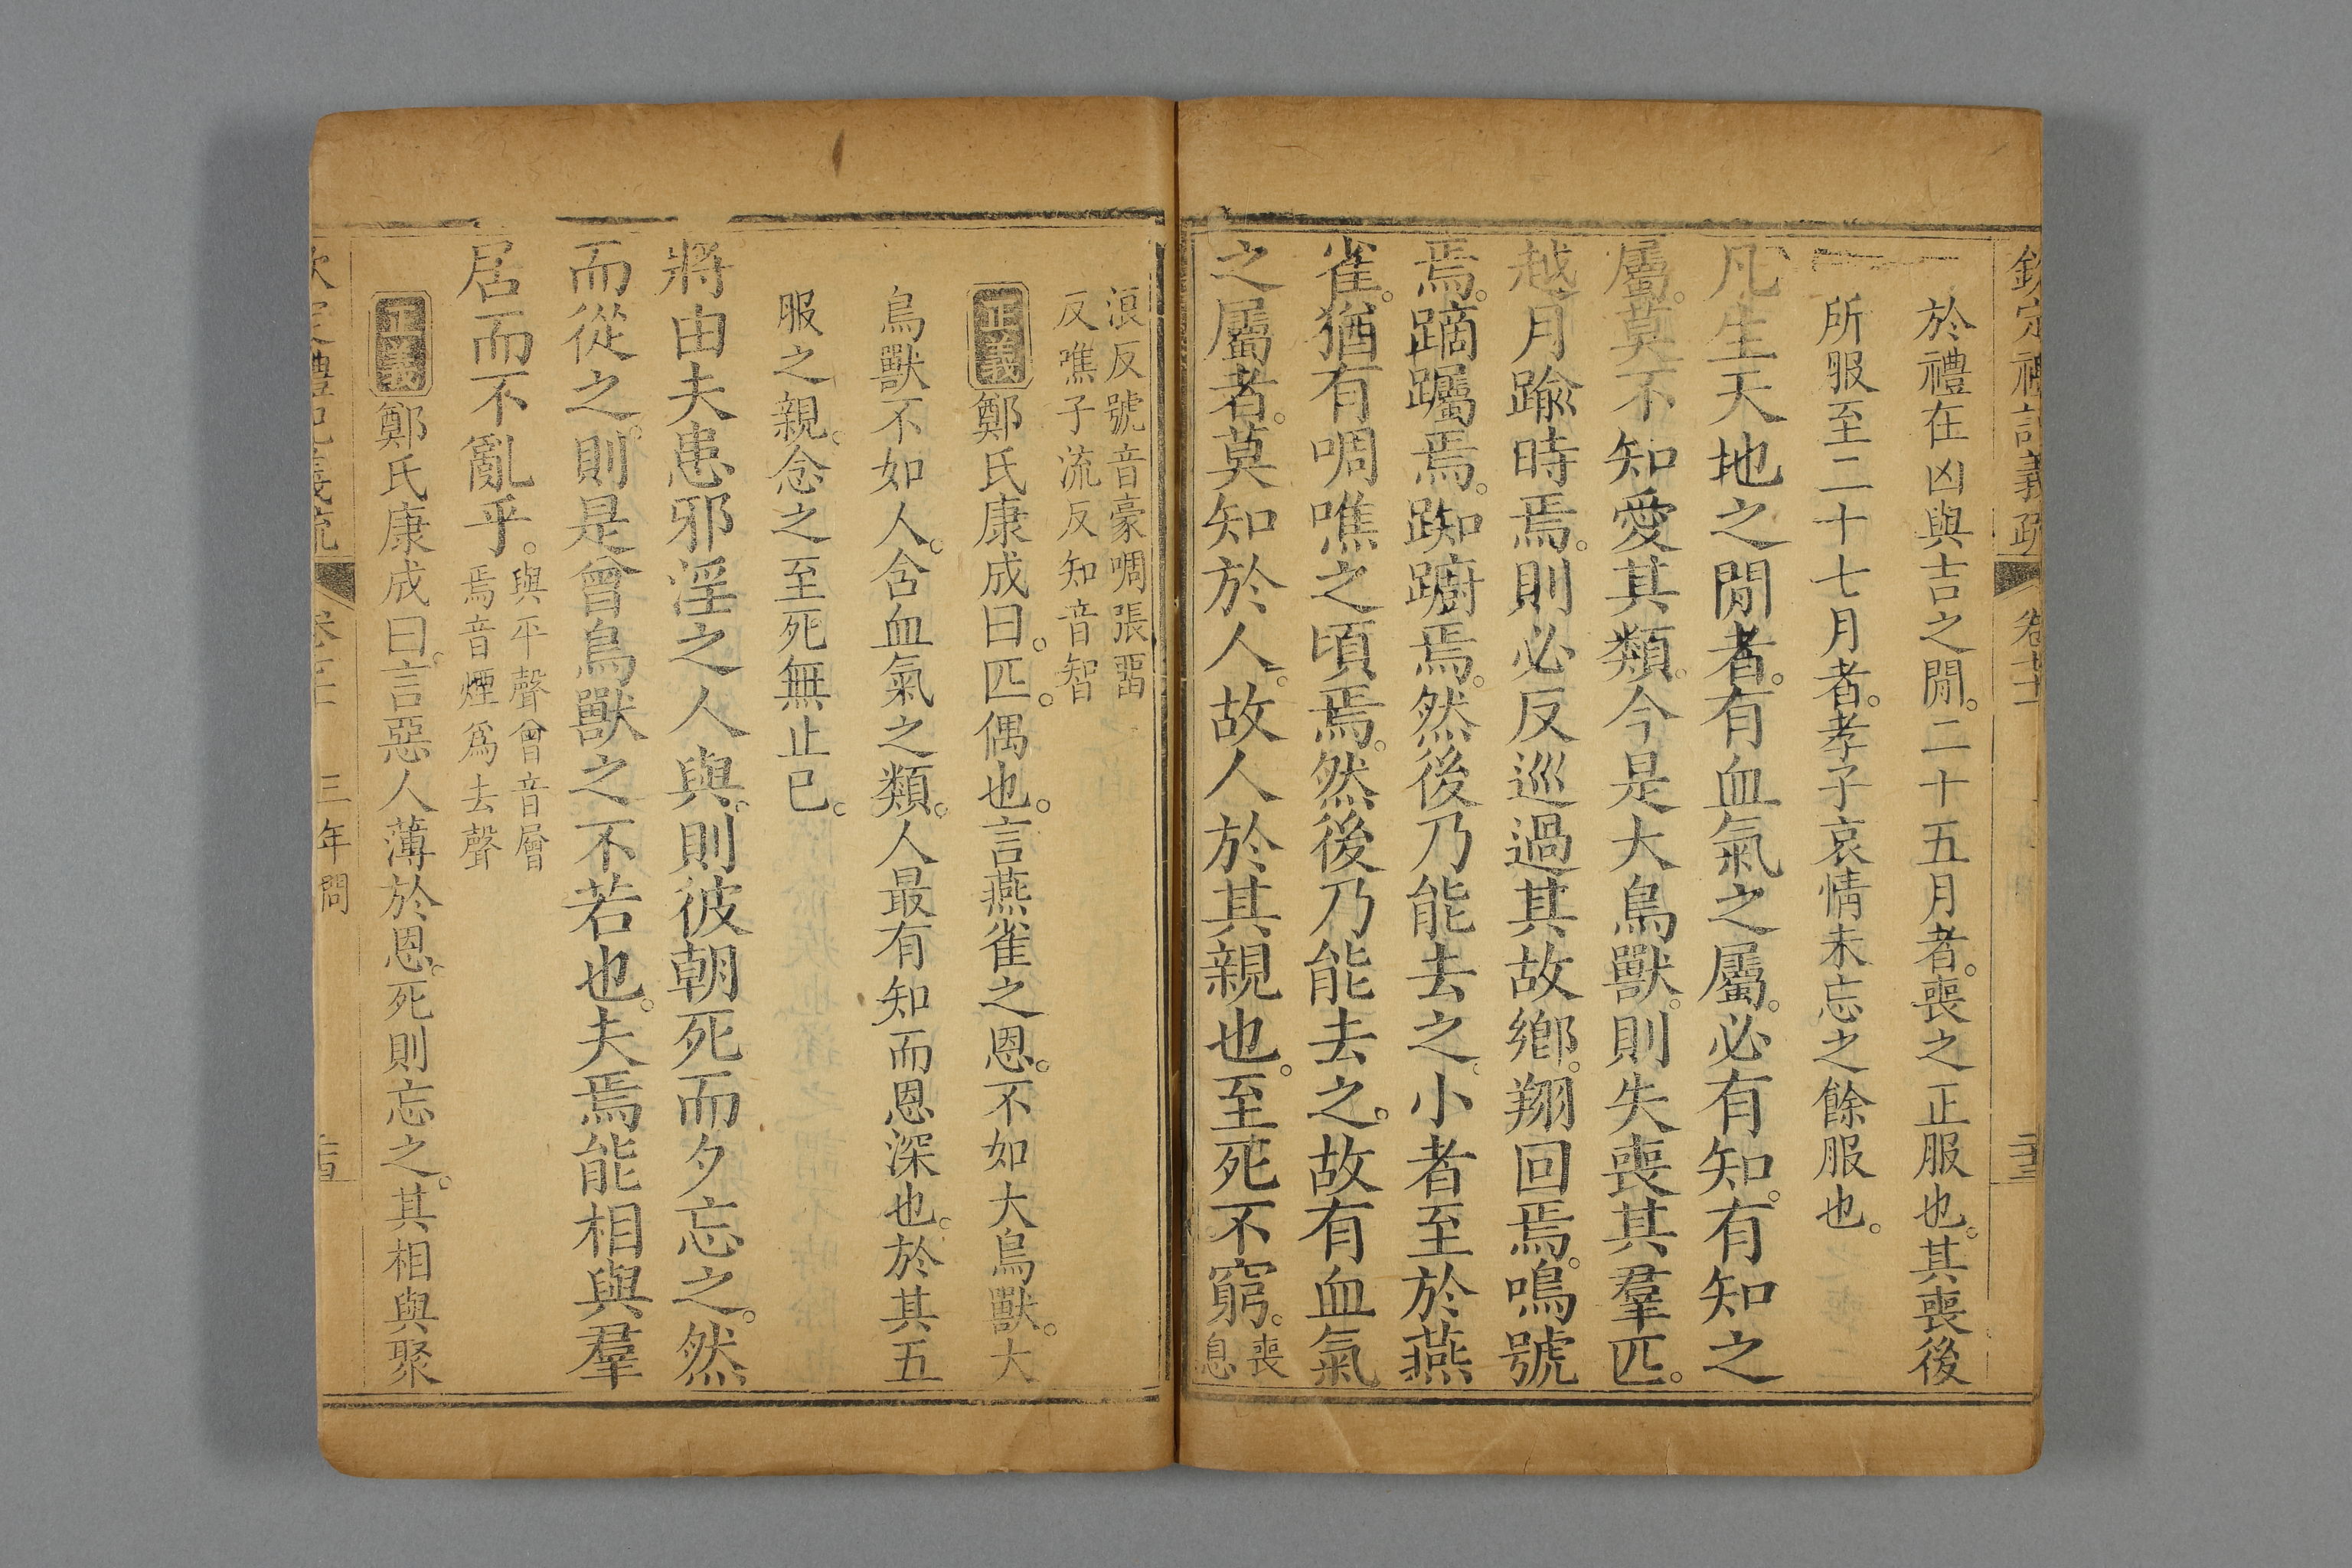 欽定禮記義疏 卷
於禮在凶與吉之閒。二十五月者。喪之正服也。其喪後
所服至二十七月者。孝子哀情未忘之餘服也。
凡生天地之閒者。有血氣之屬。必有知。有知之
屬。莫不知愛其類。今是大鳥獸。則失喪其羣匹。
越月踰時焉。則必反巡過其故鄉。翔回焉。鳴號
焉。蹢躅焉。踟躕焉。然後乃能去之。小者至於燕
雀。猶有啁噍之頃焉。然後乃能去之。故有血氣
之屬者。莫知於人。故人於其親也。至死不窮。喪
息
浪反號音豪啁張畱
反噍子流反知音智
正義鄭氏康成曰。匹。偶也。言燕雀之恩。不如大鳥獸。大
鳥獸不如人。含血氣之類。人最有知而恩深也。於其五
服之親。念之至死無止已。
將由夫患邪淫之人與。則彼朝死而夕忘之。然
而從之。則是曾鳥獸之不若也。夫焉能相與羣
居而不亂乎。與平聲曾音層
焉音煙爲去聲
正義鄭氏康成曰。言惡人薄於恩。死則忘之。其相與聚
欽定禮記義疏 卷 三年問